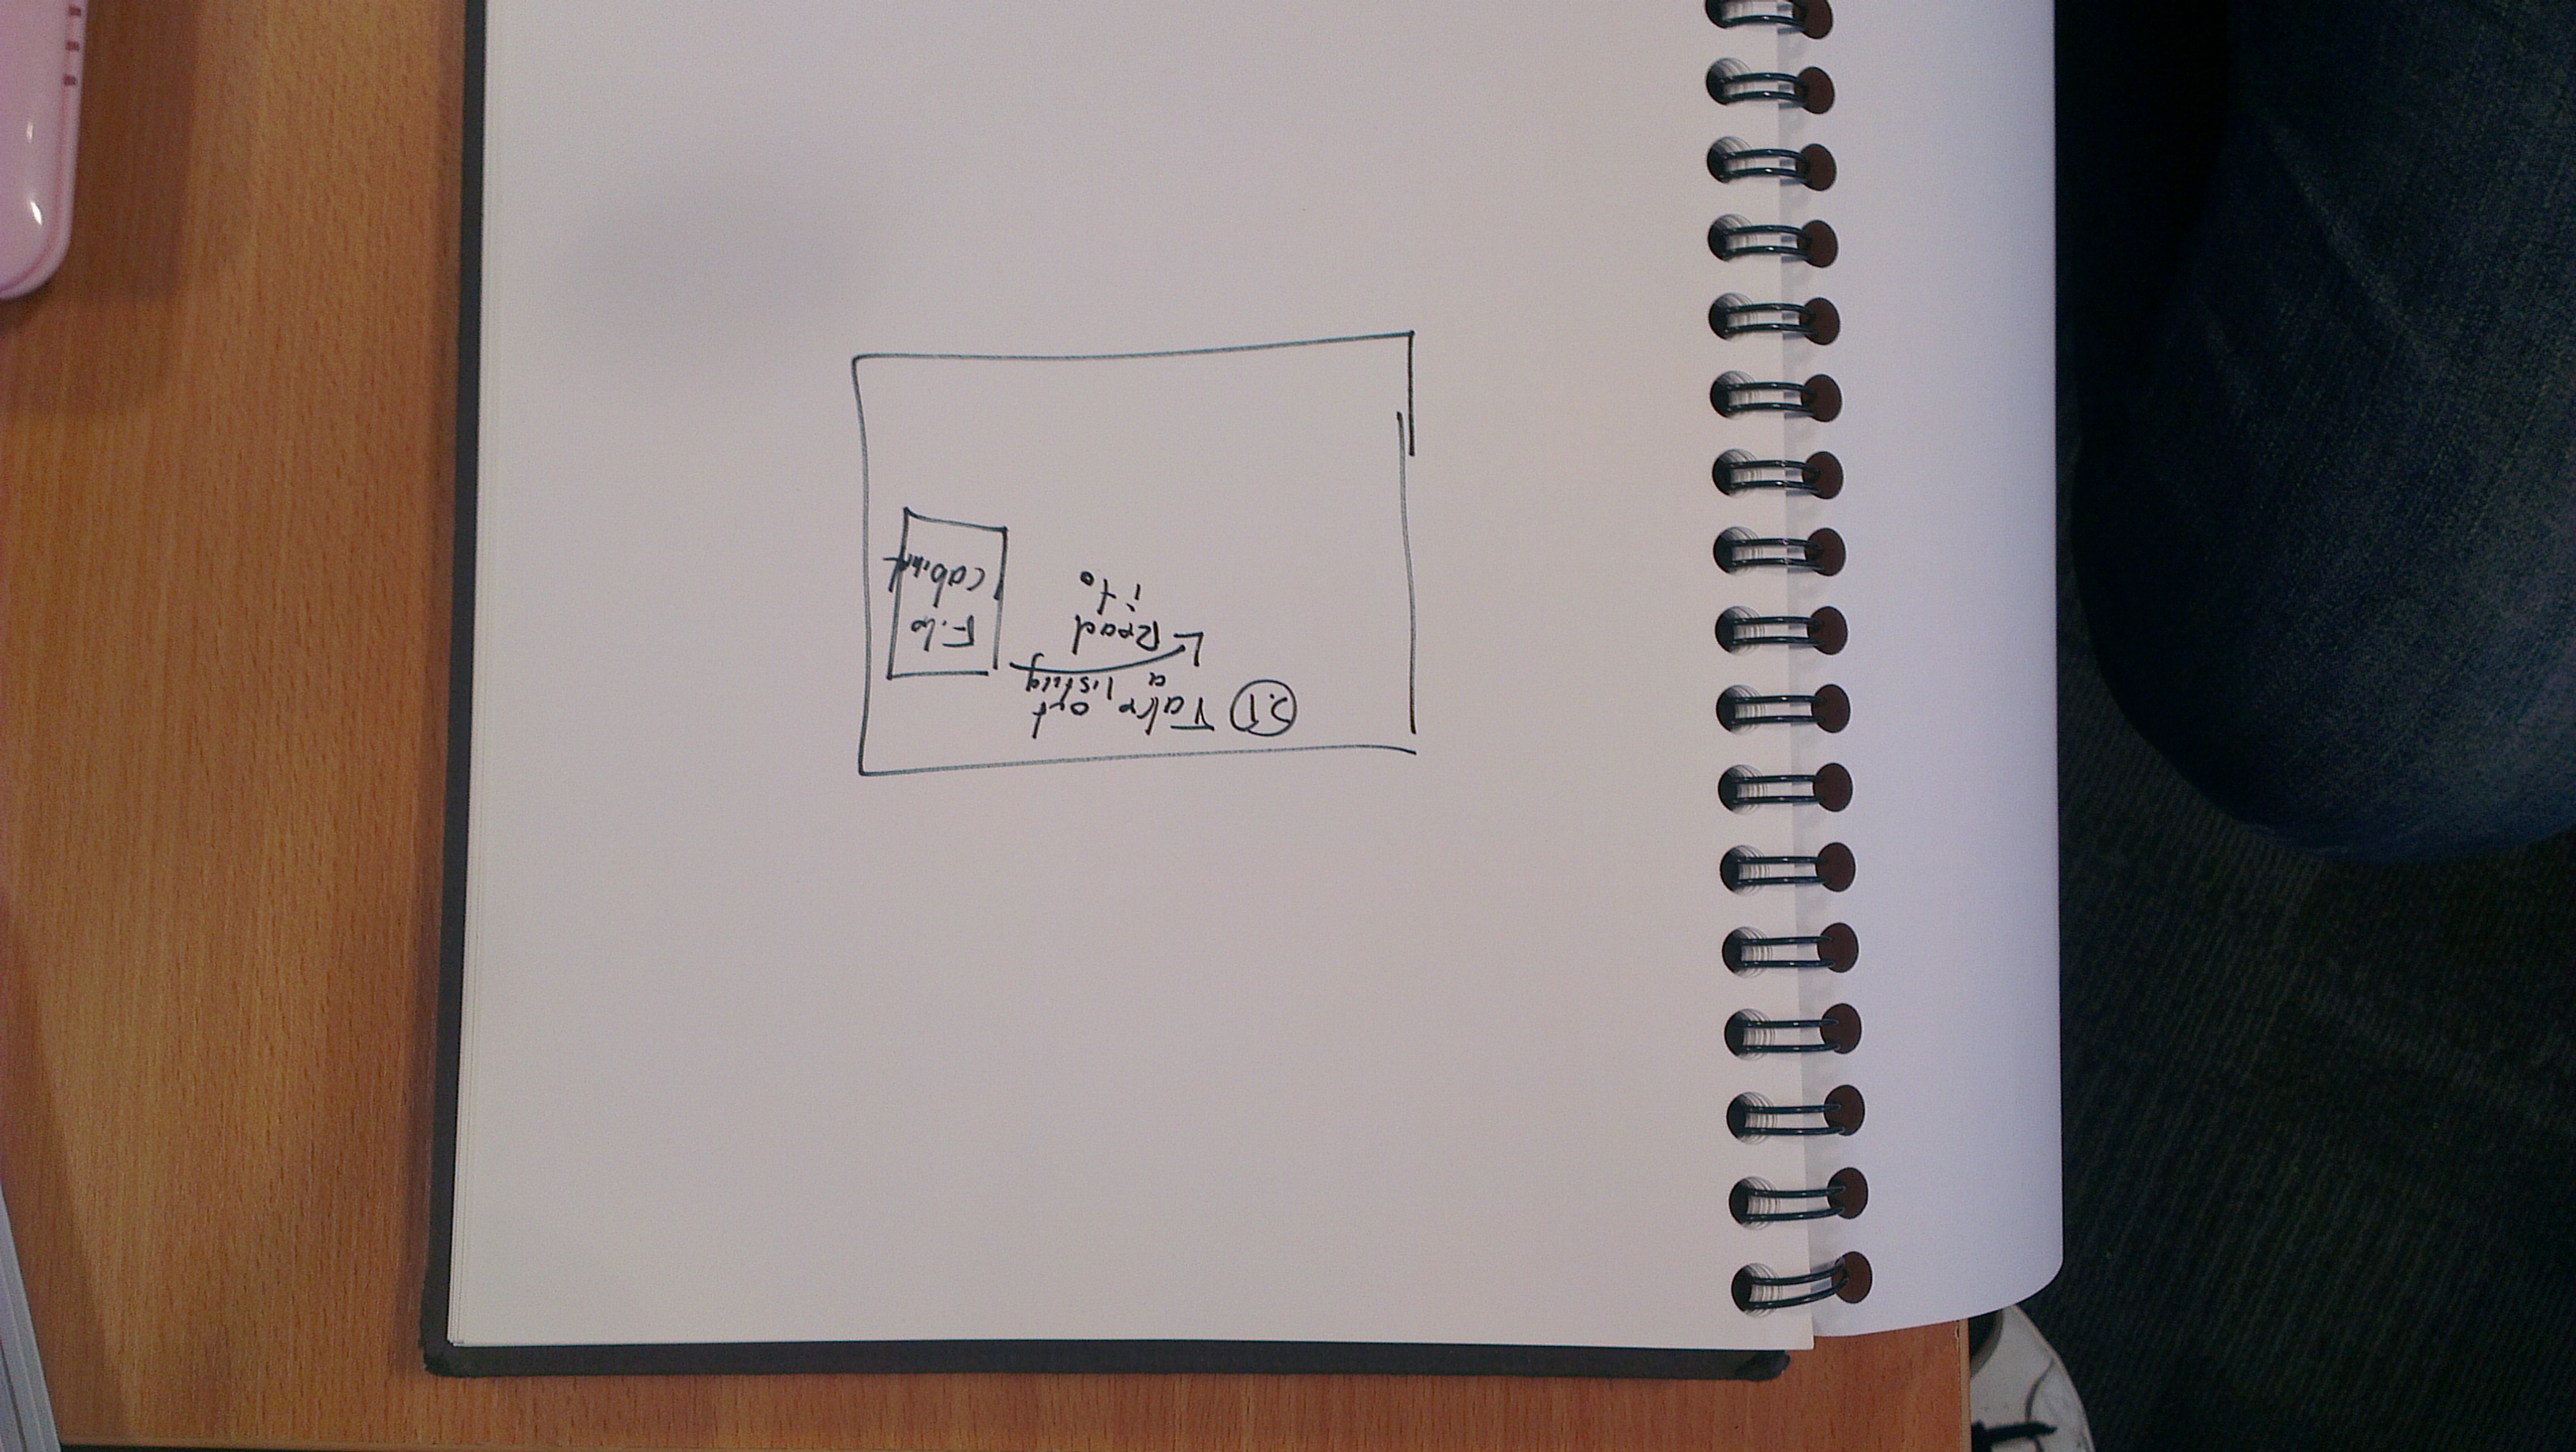 2.1 Take out
a listing
Read
it.
File
Cabinet